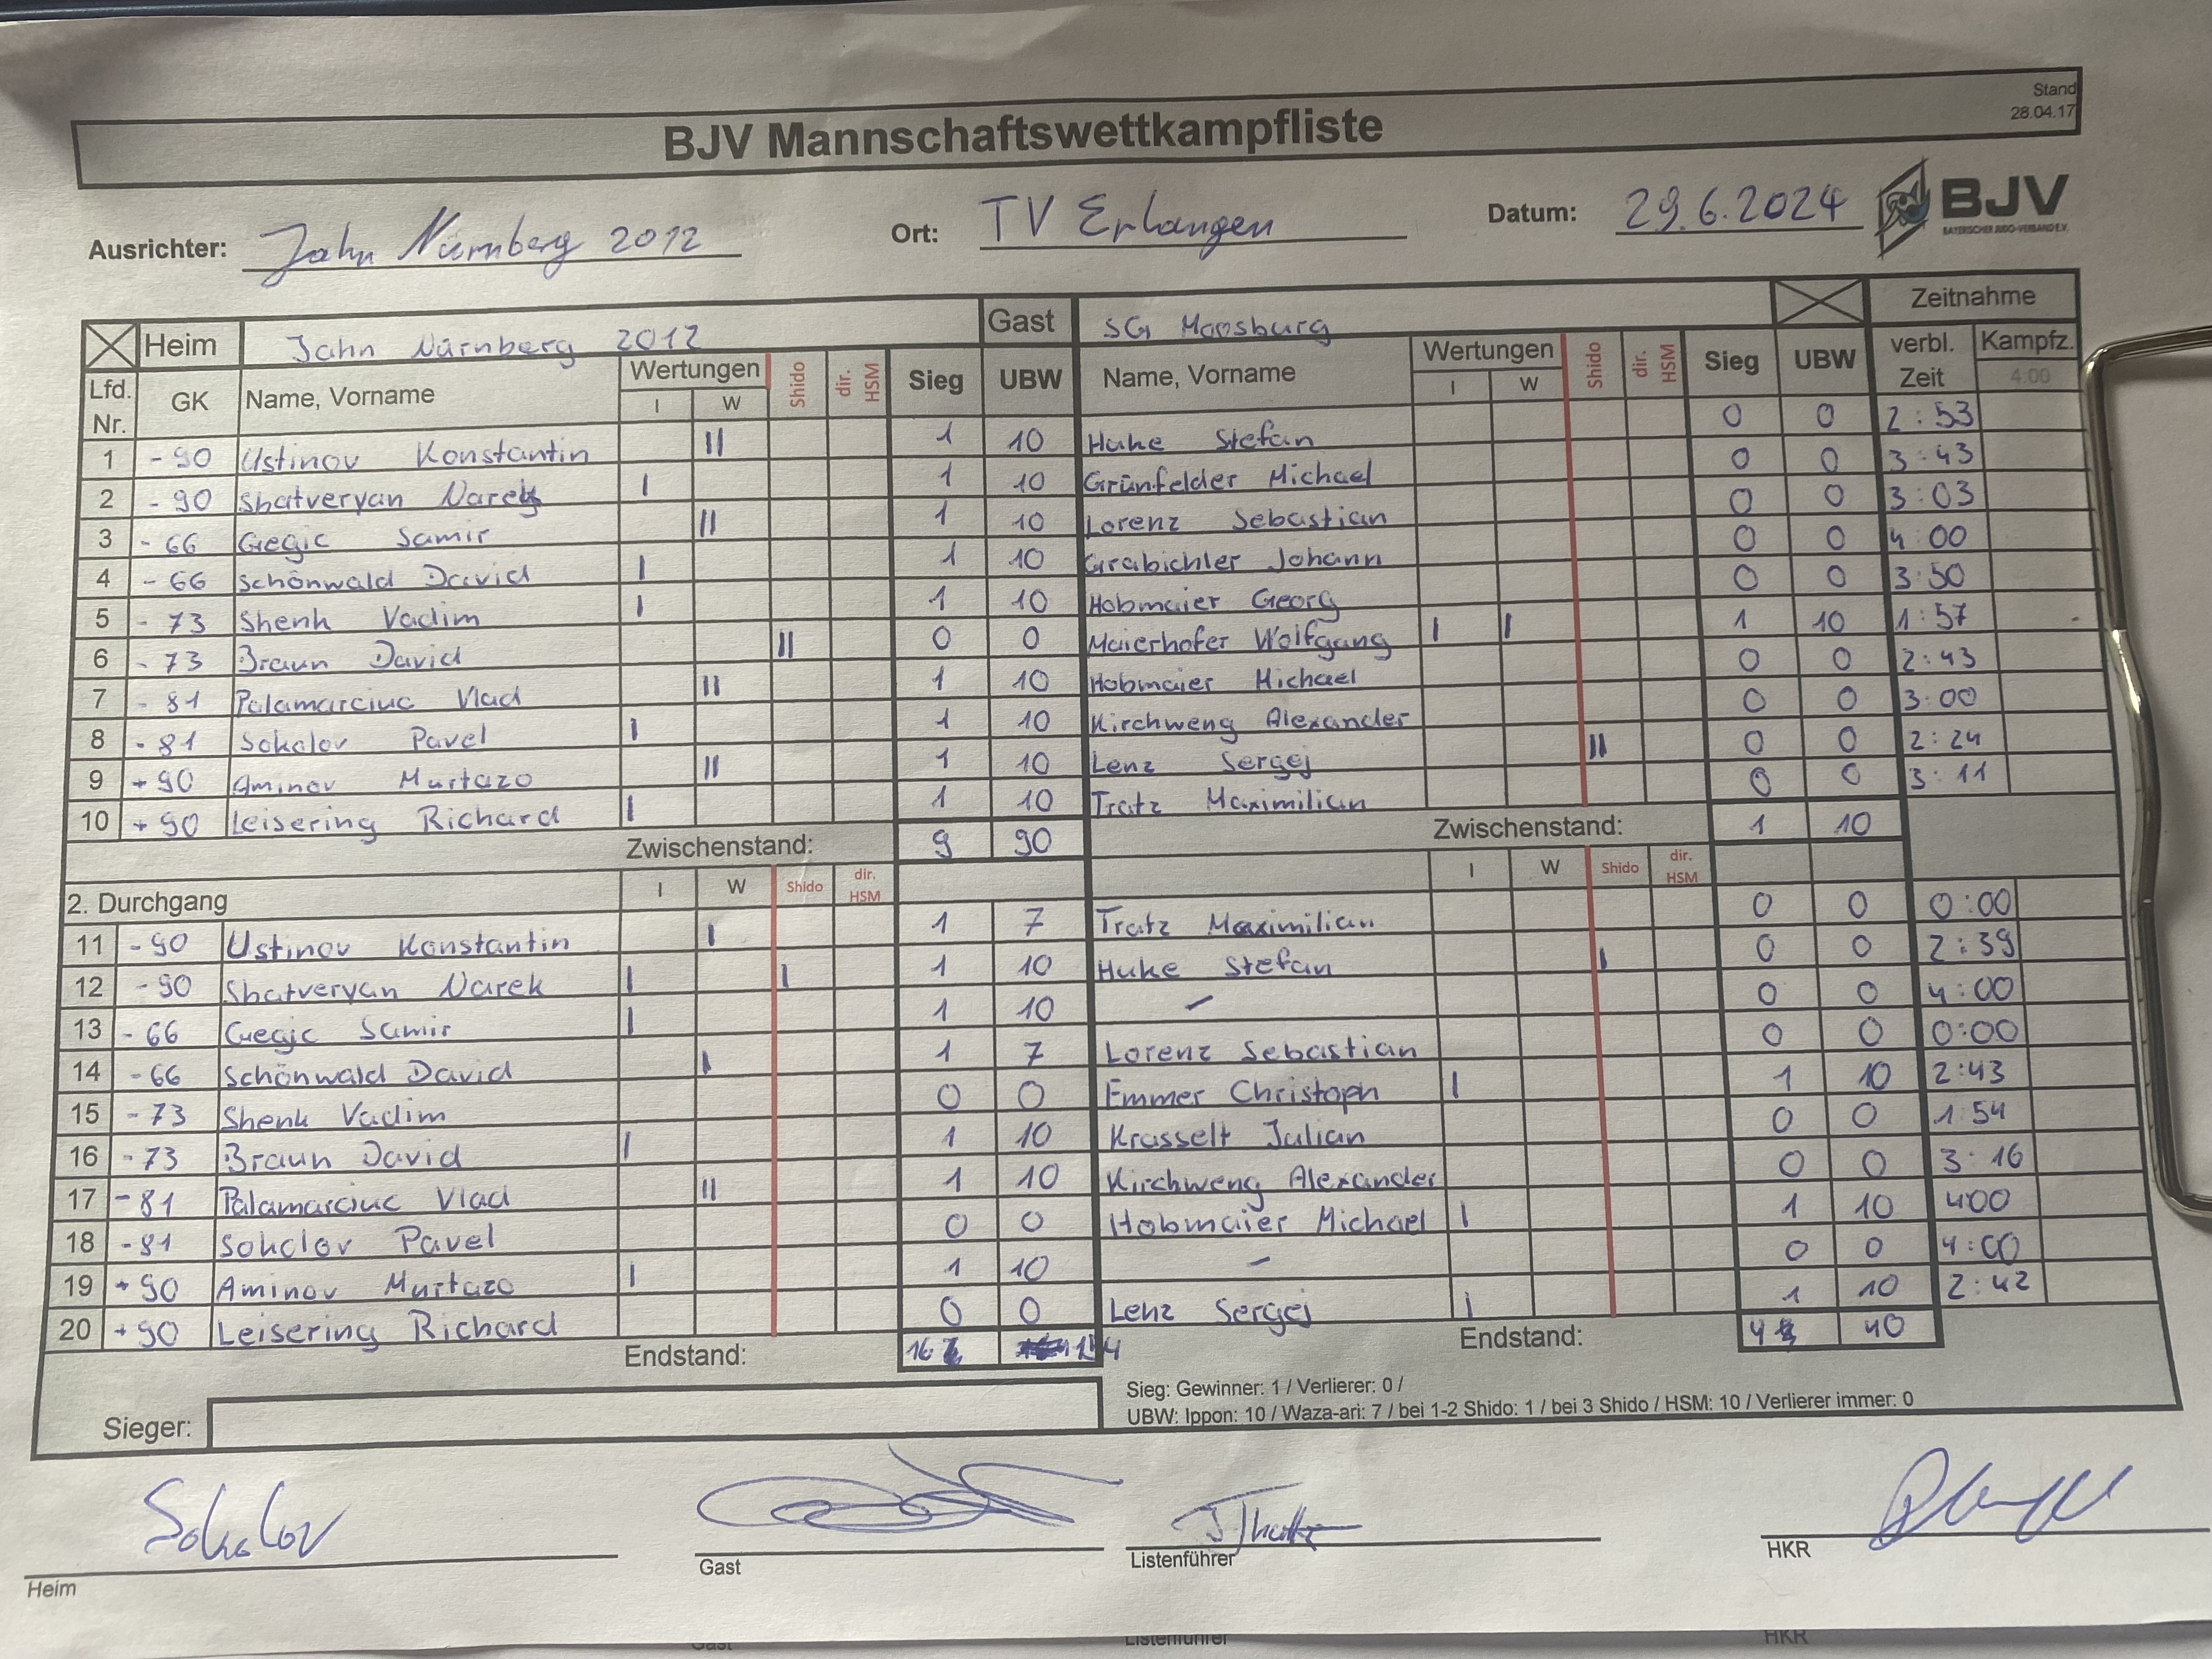 Stand
28.04.17
BJV Mannschaftswettkampfliste
Ausrichter: Jahn Nürnberg 2012 Ort: TV Erlangen Datum: 29.6.2024 BJV
BAYERISCHER JUDO-VERBAND E.V.
Heim Jahn Nürnberg 2012 Gast SG Moosburg Zeitnahme
Lfd. Nr. GK Name, Vorname Wertungen I W Shido dir. HSM Sieg UBW Name, Vorname Wertungen I W Shido dir. HSM Sieg UBW verbl. Zeit Kampfz. 4:00
1 -90 Ustinov Konstantin II 1 10 Huke Stefan 0 0 2:53
2 -90 Shatveryan Narek I 1 10 Grünfelder Michael 0 0 3:43
3 -66 Gegic Samir II 1 10 Lorenz Sebastian 0 0 3:03
4 -66 Schönwald David I 1 10 Grabichler Johann 0 0 4:00
5 -73 Shenk Vadim I 1 10 Hobmaier Georg 0 0 3:50
6 -73 Braun David II 0 0 Maierhofer Wolfgang I I 1 10 1:57
7 -81 Palamarciuc Vlad II 1 10 Hobmaier Michael 0 0 2:43
8 -81 Sokolov Pavel I 1 10 Kirchweng Alexander 0 0 3:00
9 +90 Aminov Murtazo II 1 10 Lenz Sergej II 0 0 2:24
10 +90 Leisering Richard I 1 10 Tratz Maximilian 0 0 3:11
Zwischenstand: 9 90 Zwischenstand: 1 10
2. Durchgang I W Shido dir. HSM I W Shido dir. HSM
11 -90 Ustinov Konstantin I 1 7 Tratz Maximilian 0 0 0:00
12 -90 Shatveryan Narek I I 1 10 Huke Stefan I 0 0 2:39
13 -66 Gegic Samir I 1 10 - 0 0 4:00
14 -66 Schönwald David I 1 7 Lorenz Sebastian 0 0 0:00
15 -73 Shenk Vadim 0 0 Emmer Christoph I 1 10 2:43
16 -73 Braun David I 1 10 Krasselt Julian 0 0 1:54
17 -81 Palamarciuc Vlad II 1 10 Kirchweng Alexander 0 0 3:16
18 -81 Sokolov Pavel 0 0 Hobmaier Michael I 1 10 400
19 +90 Aminov Murtazo I 1 10 - 0 0 4:00
20 +90 Leisering Richard 0 0 Lenz Sergej I 1 10 2:42
Endstand: 16 154 Endstand: 4 40
Sieger:
Sieg: Gewinner: 1 / Verlierer: 0 /
UBW: Ippon: 10 / Waza-ari: 7 / bei 1-2 Shido: 1 / bei 3 Shido / HSM: 10 / Verlierer immer: 0
Sokolov
Heim Gast Listenführer HKR
Gast Listenführer HKR